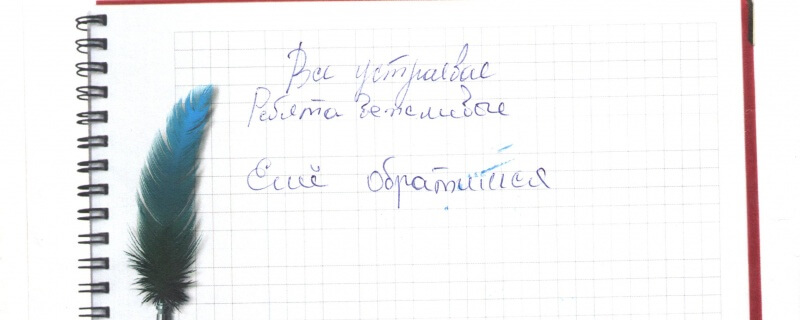 Все устраевае
Ребята вежливые
Ещё обратимся